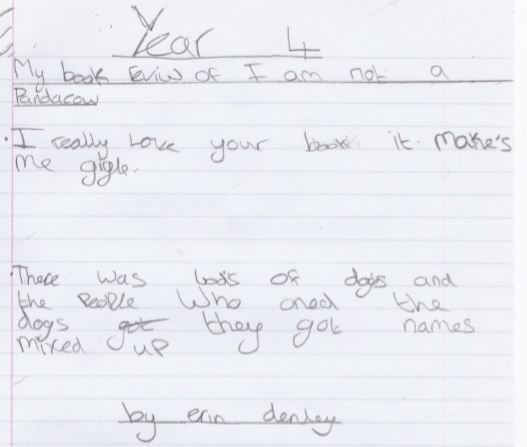 Year 4
My book reviw of I am not a
Pandacow
·I really Love your book it. Make's
me gigle.
·There was lods of dogs and
the People Who oned the
dogs got they got names
mixed up
by erin denley